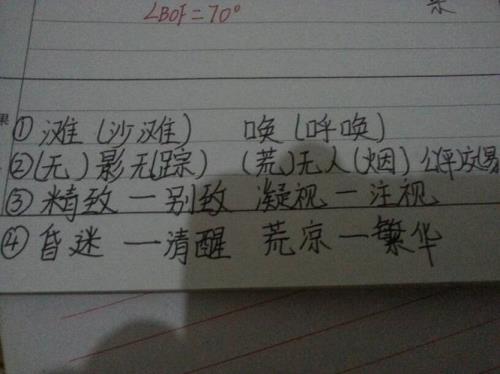 ∠BOF=70°
①滩（沙滩） 唤（呼唤）
②（无）影无（踪） （荒）无人（烟） 公（平）交易
③精致一别致 凝视一注视
④昏迷一清醒 荒凉一繁华